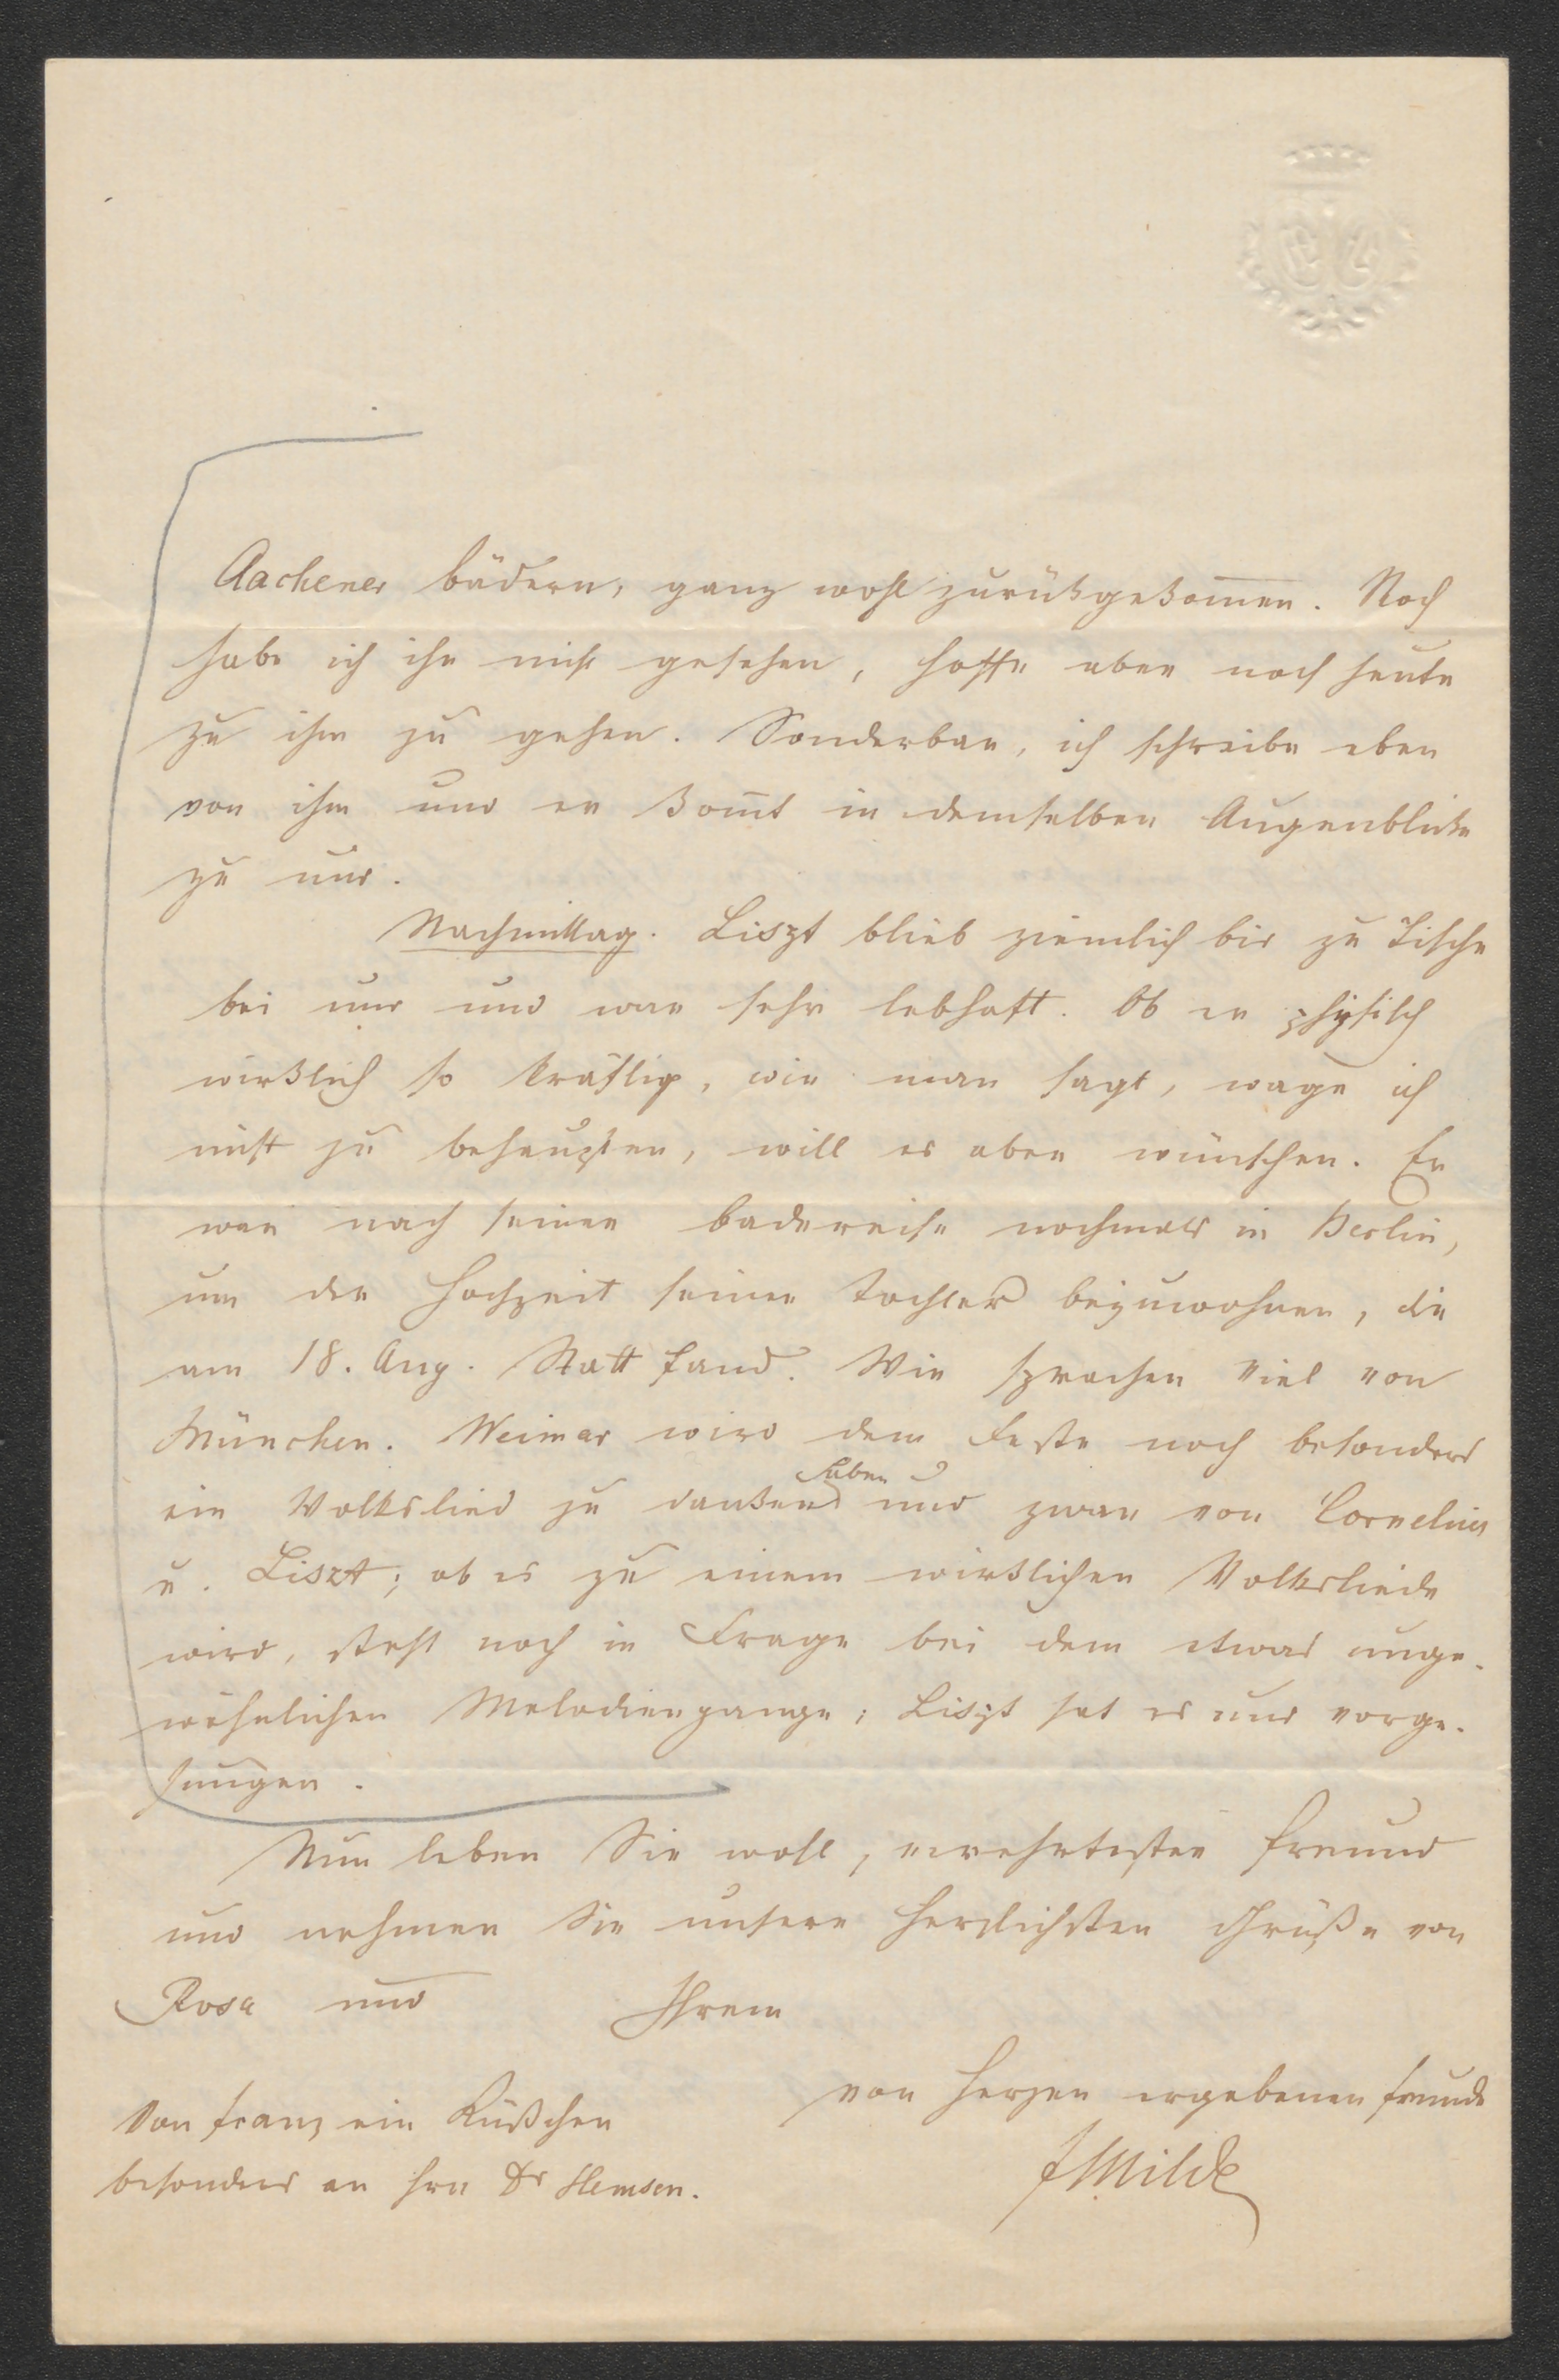 Aachener Bädern, ganz wohl zurükgekom̅en. Noch
habe ich ihn nicht gesehen, hoffe aber noch heute
zu ihm zu gehen. Sonderbar, ich schreibe eben
von ihm und er kom̅t in demselben Augenblicke
zu uns.
Nachmittag. Liszt blieb ziemlich bis zu Tische
bei uns und war sehr lebhaft. Ob er physisch
wirklich so kräftig, wie man sagt, wage ich
nicht zu behaupten, will es aber wünschen. Er
war nach seiner Badereise nochmals in Berlin,
um der Hochzeit seiner Tochter beizuwohnen, die
am 18. Aug. Statt fand. Wir sprachen viel von
München. Weimar wird dem Feste noch besonders
haben
ein Volkslied zu danken und zwar von Cornelius
u. Liszt; ob es zu einem wirklichen Volksliede
wird, steht noch in Frage bei dem etwas unge-
wöhnlichen Melodiengange; Liszt hat es uns vorge-
sungen.
Nun leben Sie wohl, verehrtester Freund
und nehmen Sie unsere herzlichsten Grüße von
Rosa und Ihrem
von Herzen ergebenen Freunde
Von Franz ein Küßchen
FMilde
besonders an Hrn Dr Hemsen.